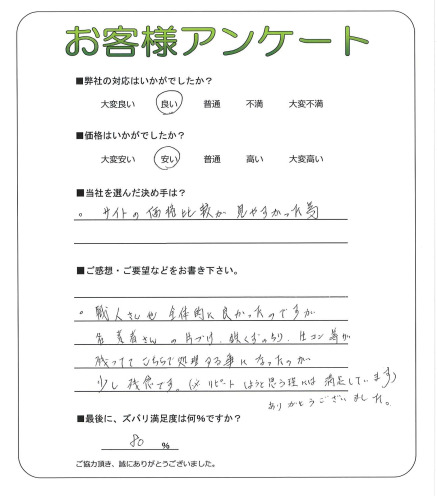 お客様アンケート
■弊社の対応はいかがでしたか？
大変良い 良い 普通 不満 大変不満
■価格はいかがでしたか？
大変安い 安い 普通 高い 大変高い
■当社を選んだ決め手は？
。サイトの価格比較が見やすかった為
■ご感想・ご要望などをお書き下さい。
。職人さん也全体的に良かったのですが
業者さんの片づけ、鉄くず 生コン等が
残っててこちらで処理する事になったのが
少し残念です。(〆リピートしようと思う程には満足しています)
ありがとうございました。
■最後に、ズバリ満足度は何%ですか？
80 %
ご協力頂き、誠にありがとうございました。